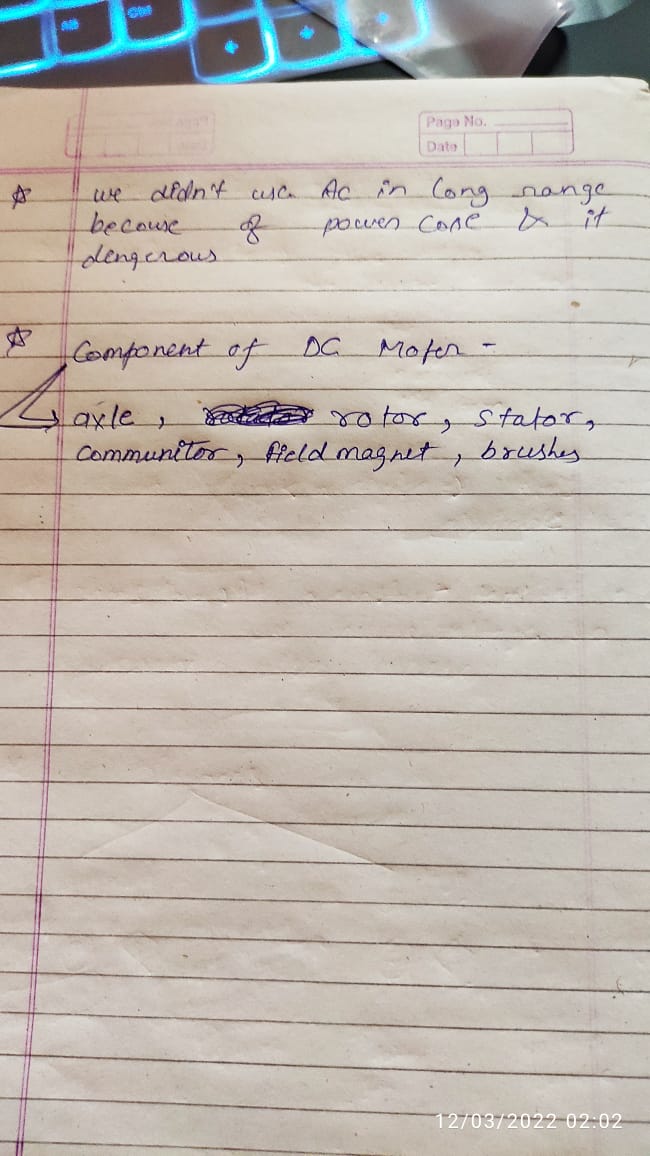 Page No.
Date
we didn't use AC in long range
becouse of power cose & it
dengerous
Component of DC Motor -
axle, rotor, stator,
communitor, field magnet, brushes
12/03/2022 02:02